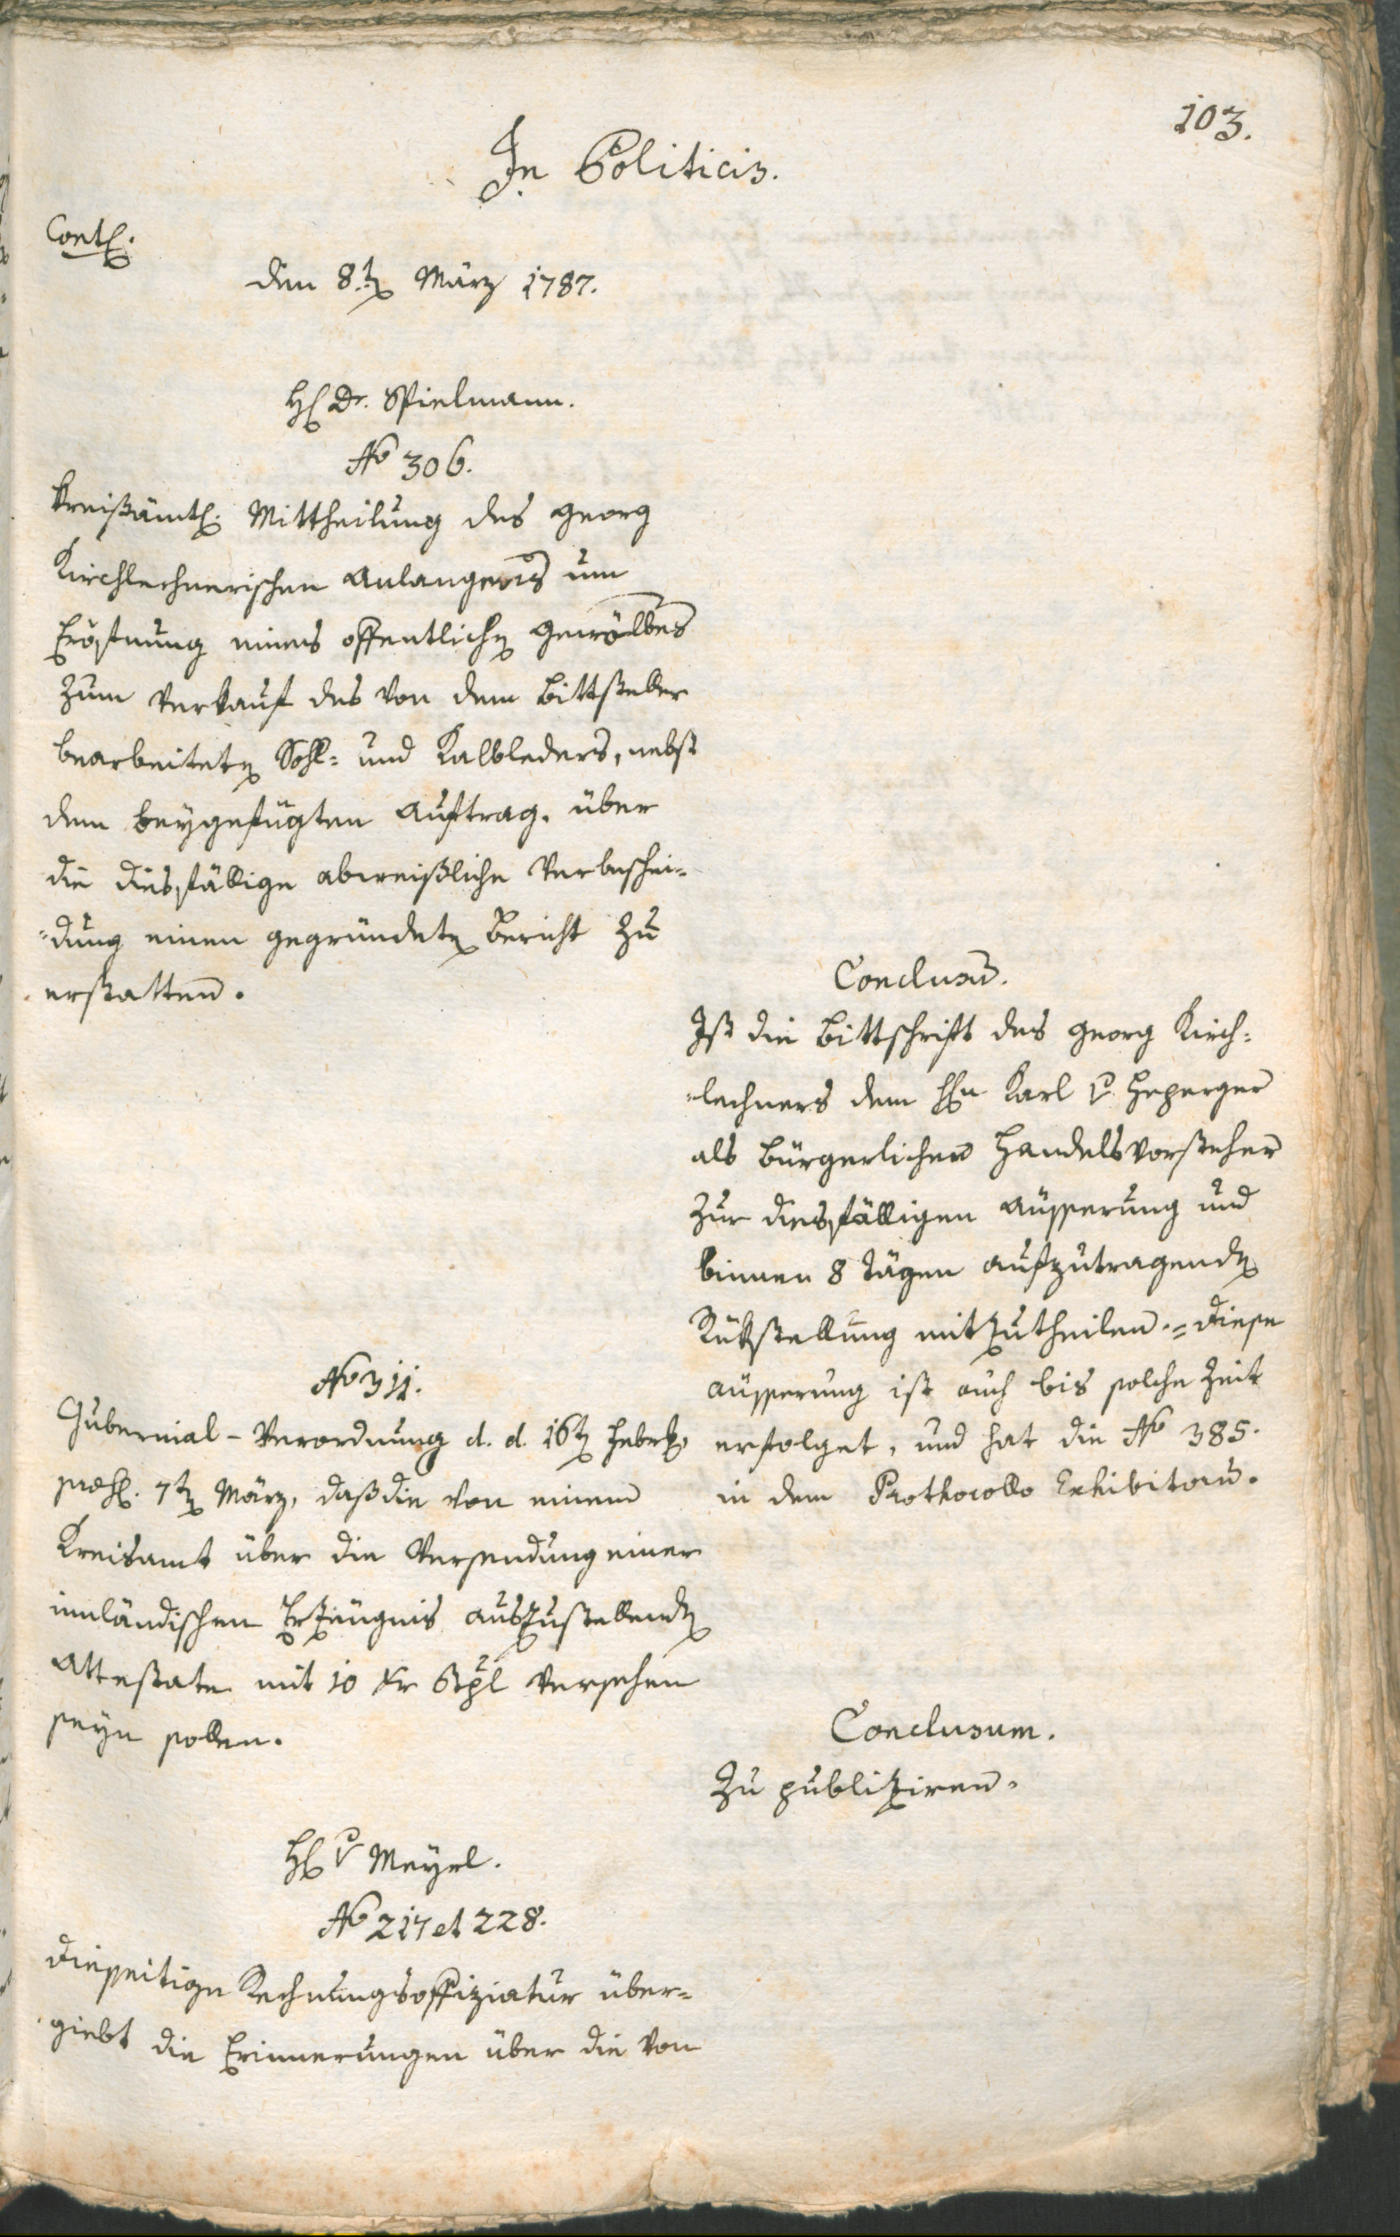 103.
In Politicis.
Contl.
den 8.tn März 1787.
Hl Dr. Spielmann.
No 306.
kreißämtl. Mittheilung des Georg
Kirchlechnerischen Anlangens um
Eröfnung eines offentlichn Gewölbes
zum Verkauf des von dem Bittsteller
bearbeitetn Sohl= und Kalbleders, nebst
dem beygefügten Auftrag. über
die diesfällige abweißliche Verbeschei=
=dung einen gegründetn Bericht zu
erstatten.
Conclusum.
Ist die Bittschrift des Georg Kirch=
=lechners dem Hln Karl v Heperger
als bürgerlichen Handelsvorsteher
zur diesfälligen Aüsserung und
binnen 8 Tägen aufzutragendn
Rükstellung mitzutheilen. = Diese
Aüsserung ist auch bis solche Zeit
erfolget, und hat die No 385.
in dem Prothocollo Exhibitorum.
No 311.
Gubernial-Verordnung d. d. 16tn Febr.
præs. 7tn März, daß die von einem
Kreisamt über die Versendung einer
innländischen Erzeügnis auszustellendn
Attestate mit 10 Xr Stpl versehen
seyn sollen.
Conclusum.
Zu publiziren.
Hl v Meyrl.
No 217 et 228.
Dieseitige Rechnungsoffiziatur über=
giebt die Erinnerungen über die von